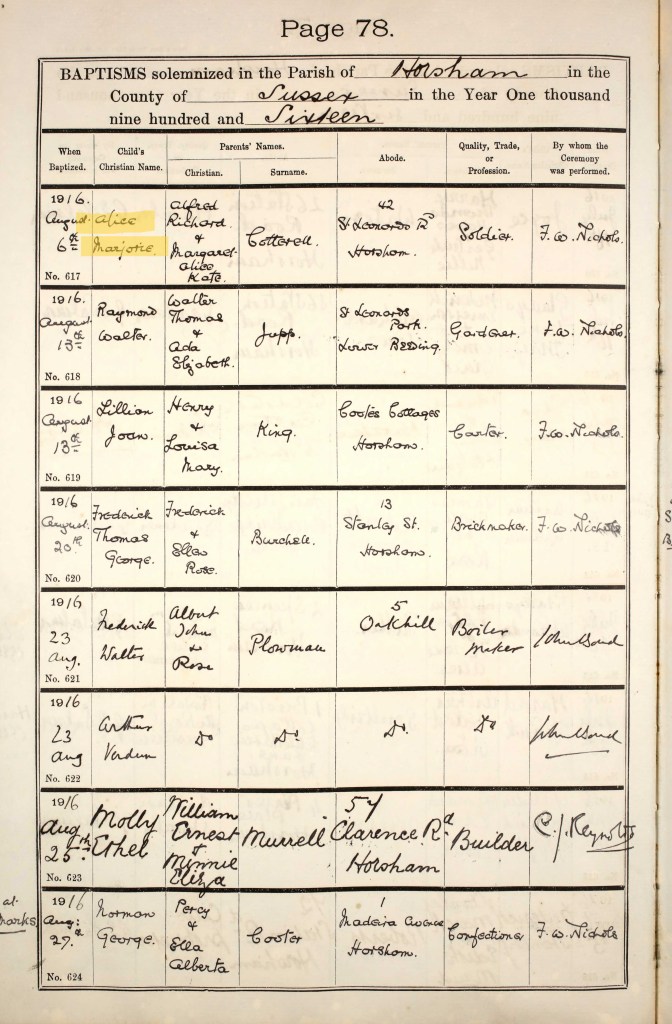 Page 78.
BAPTISMS solemnized in the Parish of Horsham in the
County of Sussex in the Year One thousand
nine hundred and Sixteen
When Baptized. Child's Christian Name. Parents' Names. Christian. Surname. Abode. Quality, Trade, or Profession. By whom the Ceremony was performed.
1916. August 6th No. 617 Alice Marjorie. Alfred Richard. & Margaret Alice Kate. Cotterell. 42 St Leonards Rd Horsham. Soldier. F. W. Nichols.
1916. August 13th No. 618 Raymond Walter. Walter Thomas & Ada Elizabeth. Jupp. St Leonards Park. Lower Beeding. Gardener. F. W. Nichols.
1916 August 13th No. 619 Lillian Joan. Henry & Louisa Mary. King. Cootes Cottages Horsham. Carter. F. W. Nichols.
1916 August 20th No. 620 Frederick Thomas George. Frederick & Ellen Rose. Burchell. 13 Stanley St. Horsham. Brickmaker. F. W. Nichols
1916 23 Aug. No. 621 Frederick Walter Albert John & Rose Plowman 5 Oakhill Boiler maker John Bond
1916 23 Aug No. 622 Arthur Verdun Do Do. Do. Do John Bond
1916 Aug 25th No. 623 Molly Ethel William Ernest & Minnie Eliza Murrell 57 Clarence Rd Horsham Builder C. J. Reynolds
1916 Aug: 27. No. 624 Norman George. Percy & Ella Alberta Cooter 1 Madeira Avenue Horsham. Confectioner F. W. Nichols